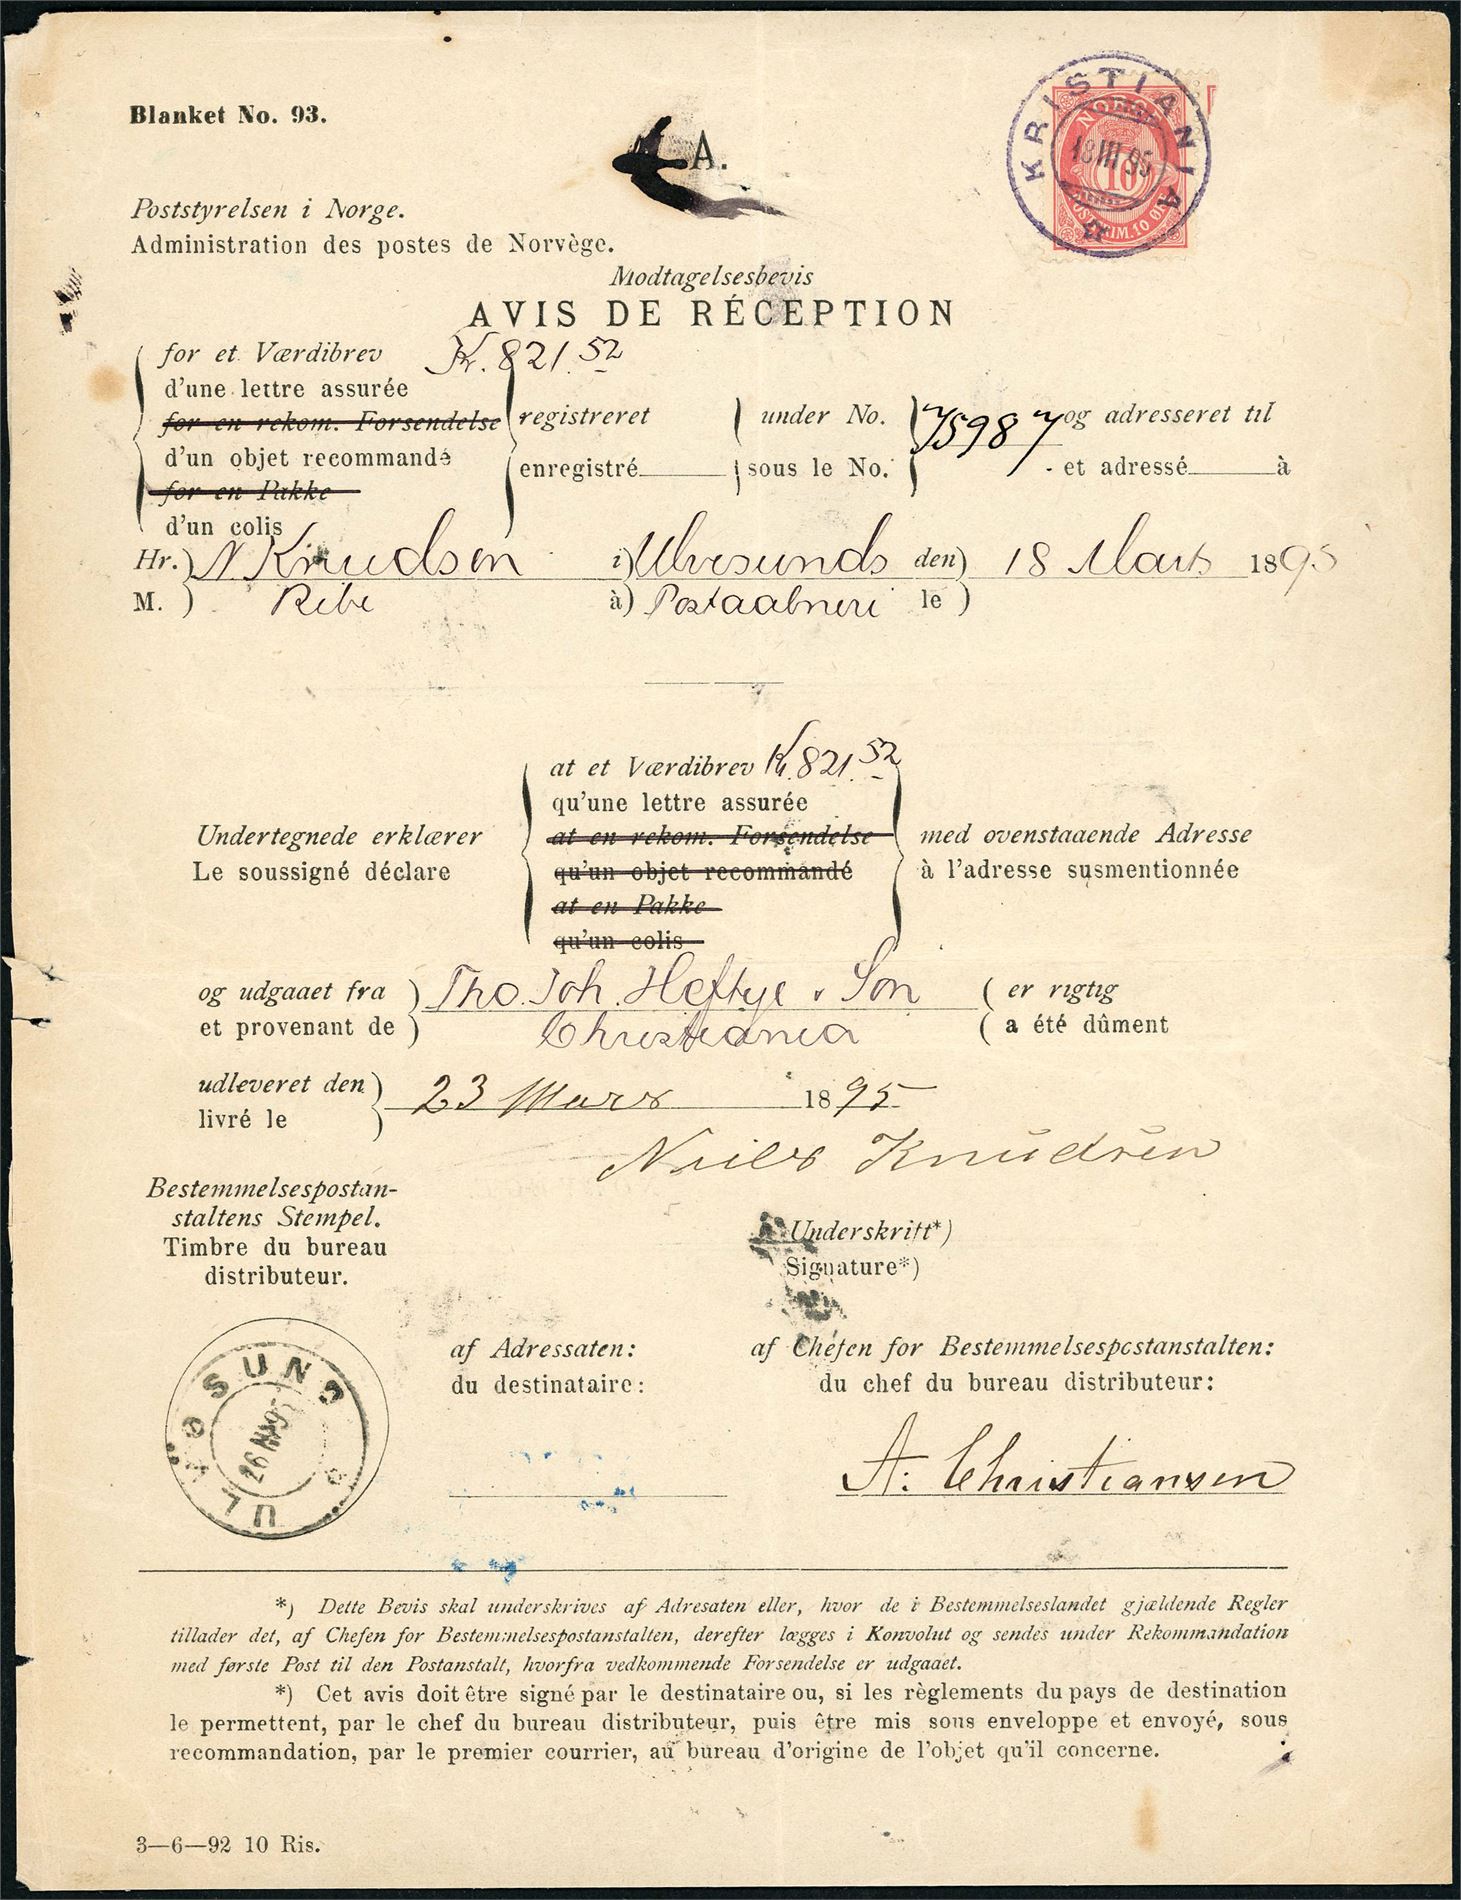 Blanket No. 93.
A.
KRISTIANIA
18 III 95
NORGE
10
POSTFRIM. 10 ØRE
Poststyrelsen i Norge.
Administration des postes de Norvège.
Modtagelsesbevis
AVIS DE RÉCEPTION
for et Værdibrev Kr. 821.52
d'une lettre assurée
for en rekom. Forsendelse registreret under No. 75987 og adresseret til
d'un objet recommandé enregistré sous le No. et adressé à
for en Pakke
d'un colis
Hr. N Knudsen i Ulvesunds den 18 Marts 1895
M. Ribe à Postaabneri le
at et Værdibrev Kr. 821.52
qu'une lettre assurée
Undertegnede erklærer at en rekom. Forsendelse med ovenstaaende Adresse
Le soussigné déclare qu'un objet recommandé à l'adresse susmentionnée
at en Pakke
qu'un colis
og udgaaet fra Tho. Joh. Heftye & Son er rigtig
et provenant de Christiania a été dûment
udleveret den 23 Mars 1895
livré le
Niels Knudsen
Bestemmelsespostan-
staltens Stempel.
Timbre du bureau
distributeur.
Underskrift*)
Signature*)
af Adressaten: af Chefen for Bestemmelsespostanstalten:
du destinataire: du chef du bureau distributeur:
ULVØSUND
26 III 95
A. Christiansen
*) Dette Bevis skal underskrives af Adresaten eller, hvor de i Bestemmelseslandet gjældende Regler
tillader det, af Chefen for Bestemmelsespostanstalten, derefter lægges i Konvolut og sendes under Rekommandation
med første Post til den Postanstalt, hvorfra vedkommende Forsendelse er udgaaet.
*) Cet avis doit être signé par le destinataire ou, si les règlements du pays de destination
le permettent, par le chef du bureau distributeur, puis être mis sous enveloppe et envoyé, sous
recommandation, par le premier courrier, au bureau d'origine de l'objet qu'il concerne.
3—6—92 10 Ris.